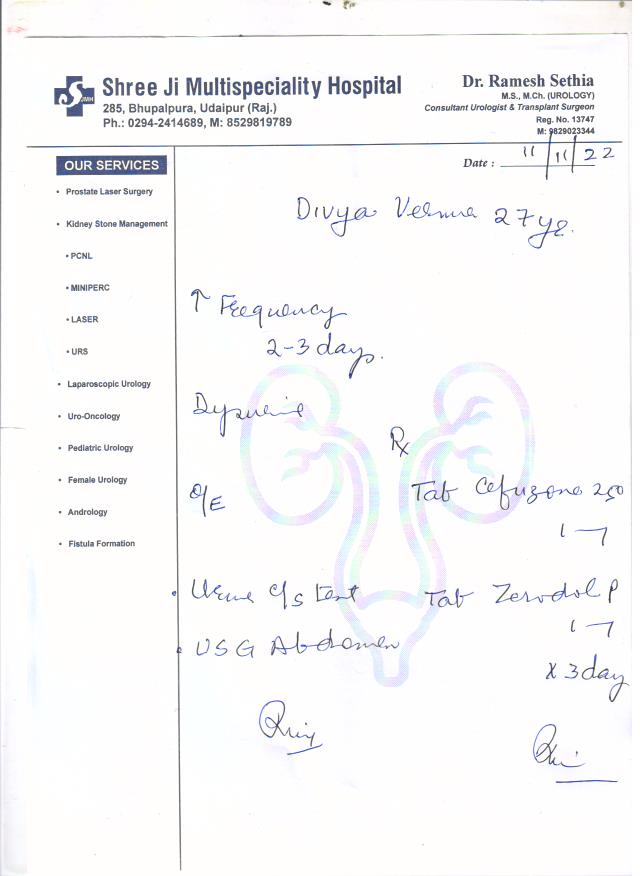 Shree Ji Multispeciality Hospital
285, Bhupalpura, Udaipur (Raj.)
Ph.: 0294-2414689, M: 8529819789
Dr. Ramesh Sethia
M.S., M.Ch. (UROLOGY)
Consultant Urologist & Transplant Surgeon
Reg. No. 13747
M: 9829023344
Date : 11/11/22
OUR SERVICES
• Prostate Laser Surgery
• Kidney Stone Management
• PCNL
• MINIPERC
• LASER
• URS
• Laparoscopic Urology
• Uro-Oncology
• Pediatric Urology
• Female Urology
• Andrology
• Fistula Formation
Divya Verma 27 ye.
↑ Frequency
2-3 days.
Dysuria
Rx
O/E
Tab 250
1—1
• Urine C/S test
Tab Zerodol P
1—1
• USG Abdomen
x 3 day